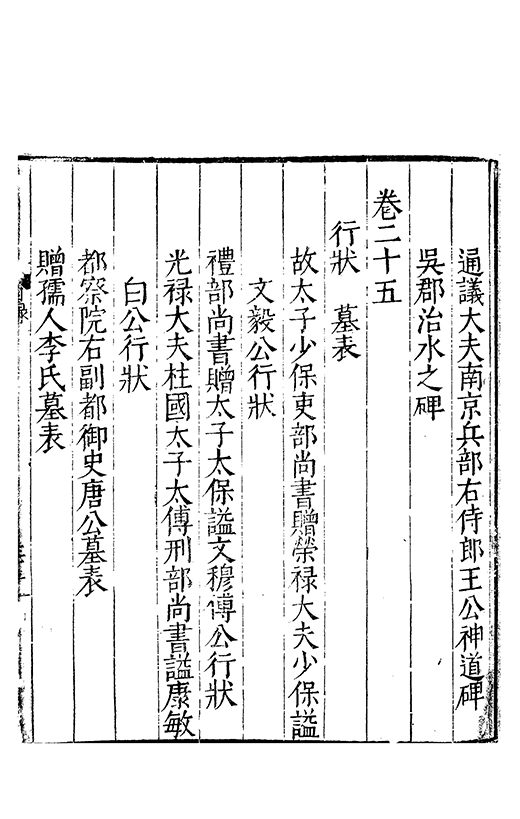 通議大夫南京兵部右侍郎王公神道碑
吳郡治水之碑
卷二十五
行狀　墓表
故太子少保吏部尚書贈榮禄大夫少保謚
文毅公行狀
禮部尚書贈太子太保謚文穆傅公行狀
光禄大夫柱國太子太傅刑部尚書謚康敏
白公行狀
都察院右副都御史唐公墓表
贈孺人李氏墓表